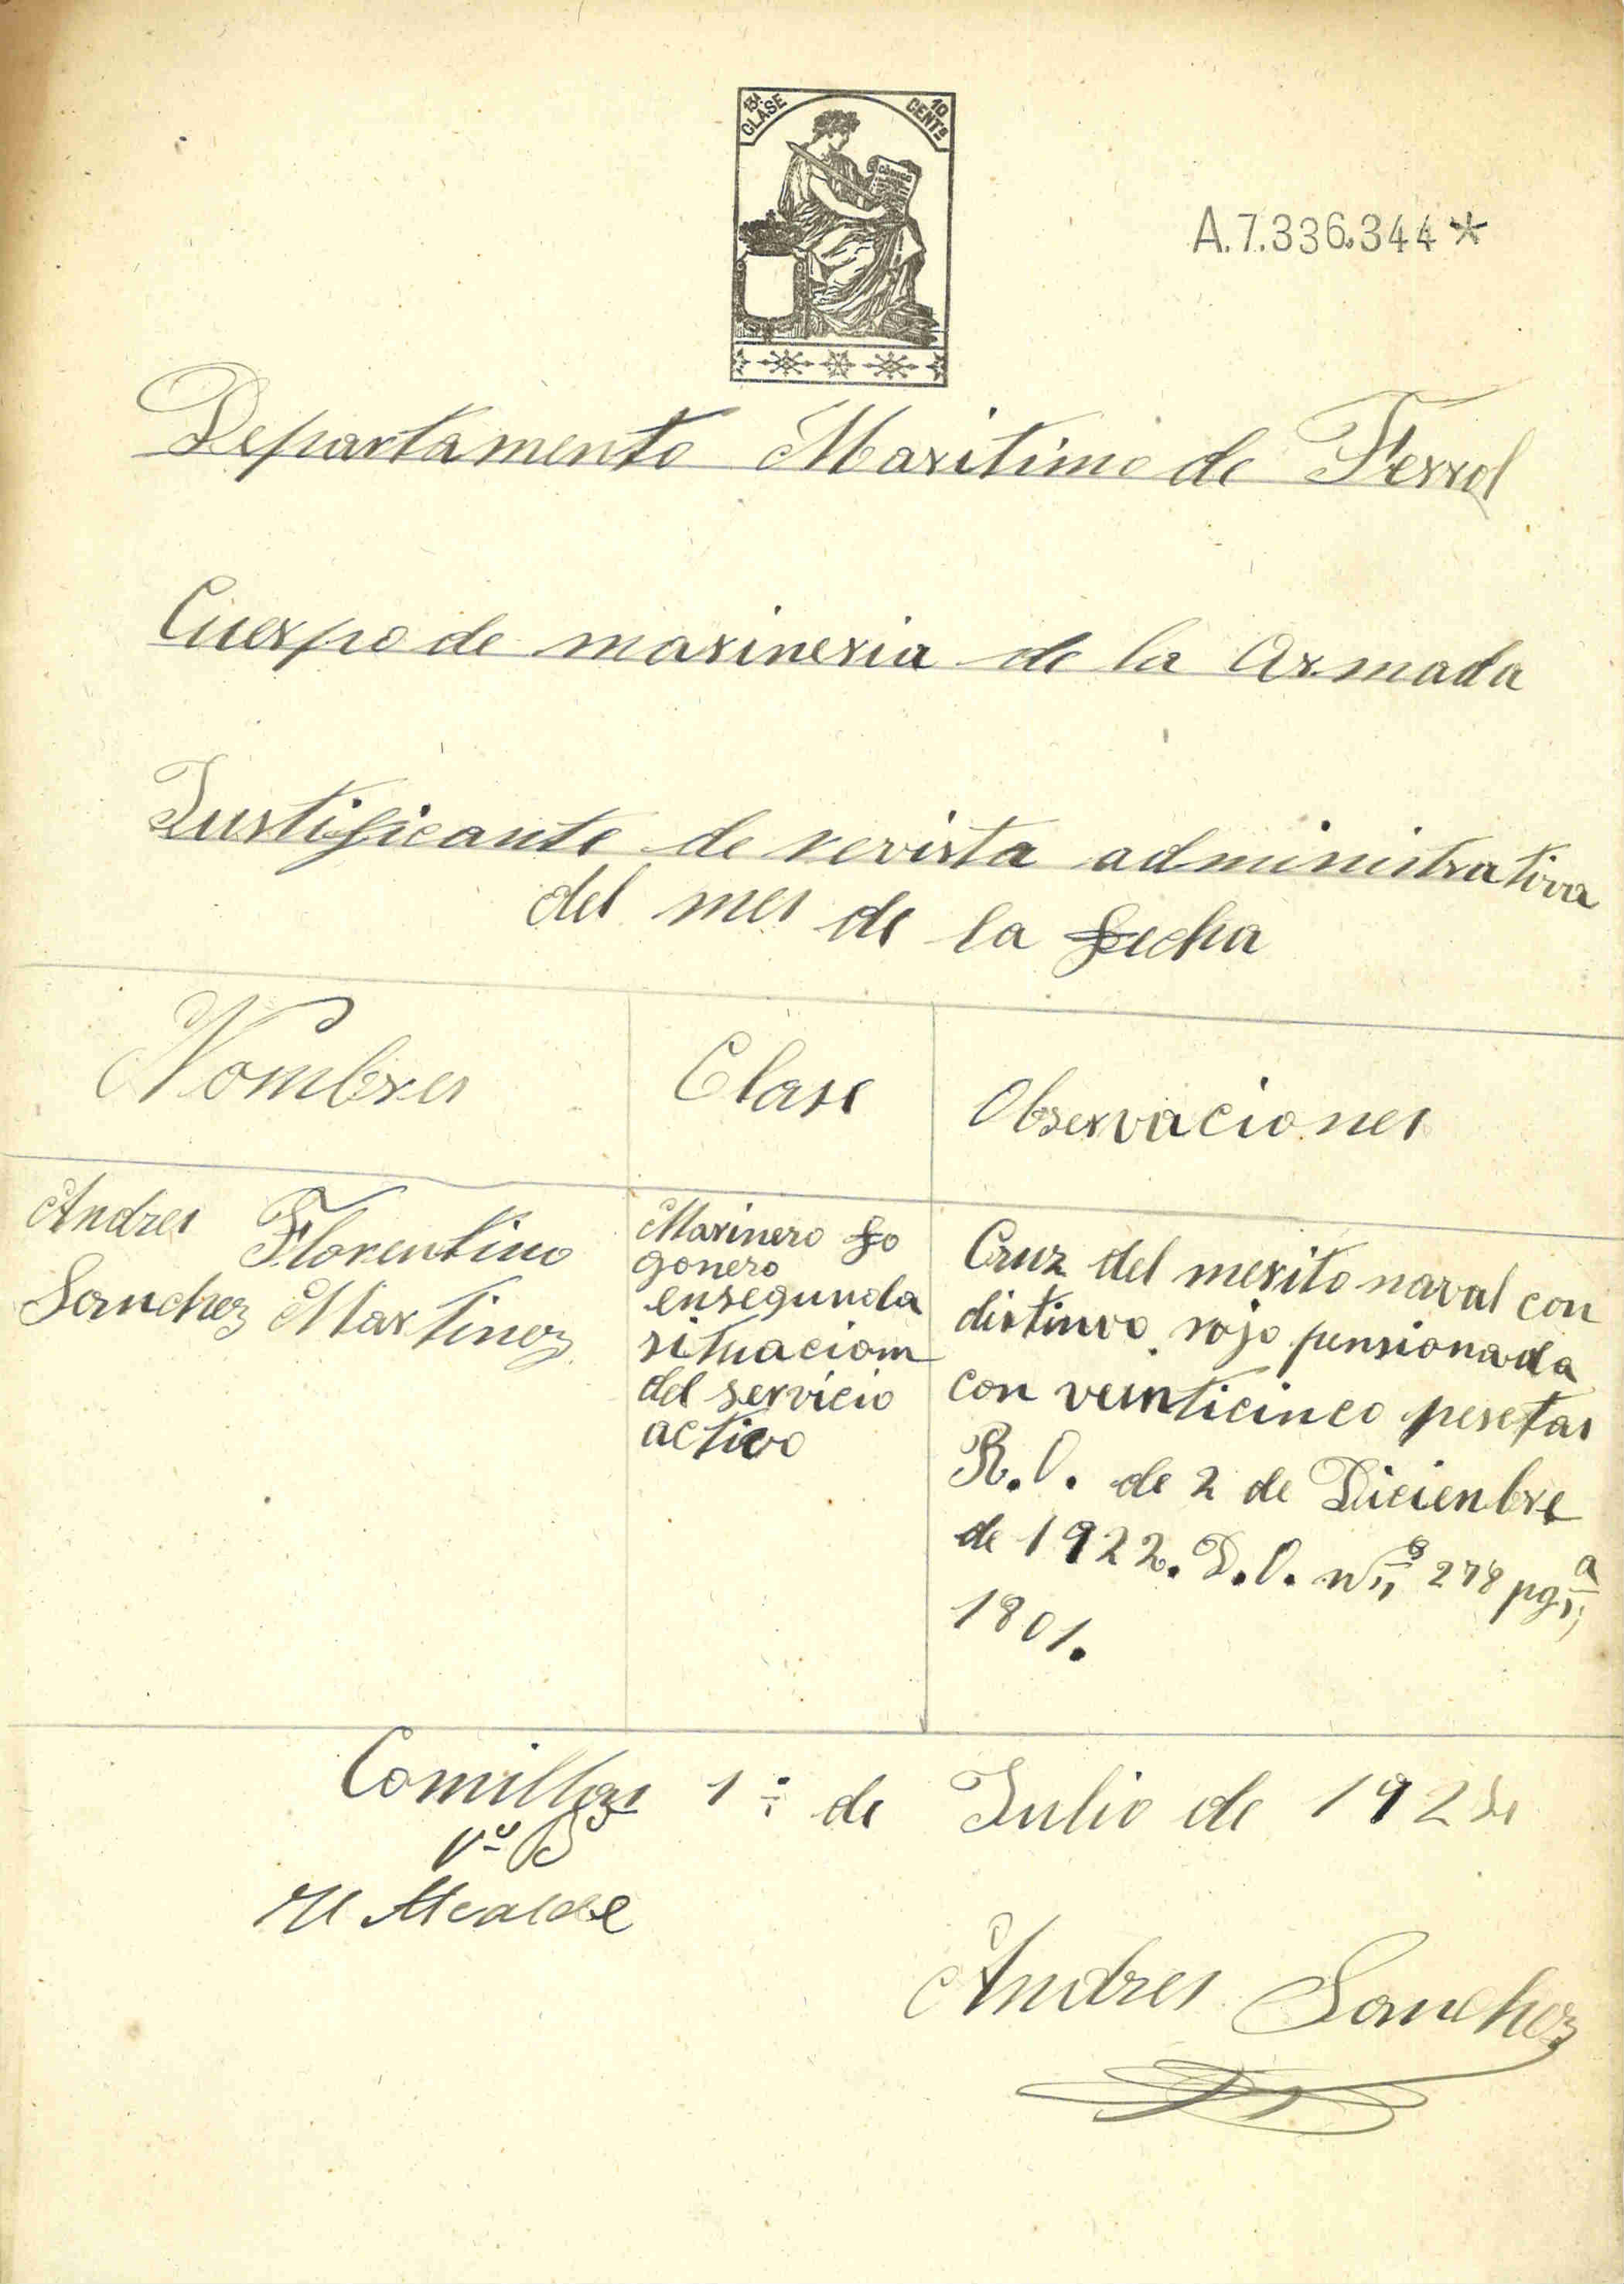 13ª CLASE
10 CENTS
A.7.336.344*
Departamento Maritimo de Ferrol
Cuerpo de marineria de la Armada
Justificante de revista administrativa
del mes de la fecha
Nombres
Clase
Observaciones
Andres Florentino
Sanchez Martinez
Marinero fo
gonero
en segunda
situaciom
del servicio
activo
Cruz del merito naval con
distinvo rojo pensionada
con veinticinco pesetas
R.O. de 2 de Dicienbre
de 1922. D.O. nº 278 pgª
1801.
Comillas 1º de Julio de
Vº Bº
El Alcalde
Andres Sanchez